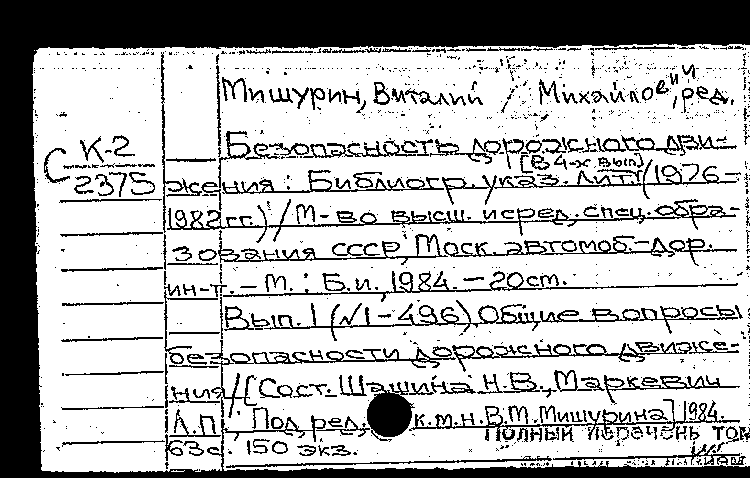 Мишурин, Виталий / Михайлович, ред.
С К-2
2375
Безопасность дорожного дви-
[В 4-х вып]
жения: Библиогр. указ. лит. (1976-
1982 гг.) / М-во высш. и сред. спец. обра-
зования СССР, Моск. автомоб.-дор.
ин-т. - М.: Б.и., 1984. - 20 cm.
Вып. 1 (№1-496) Общие вопросы
безопасности дорожного движе-
ния / [Сост. Шашина Н.В., Маркевич
Л.П.; Под ред. к.т.н. В.М. Мишурина] 1984.
Полный перечень том
63 с. 150 экз.